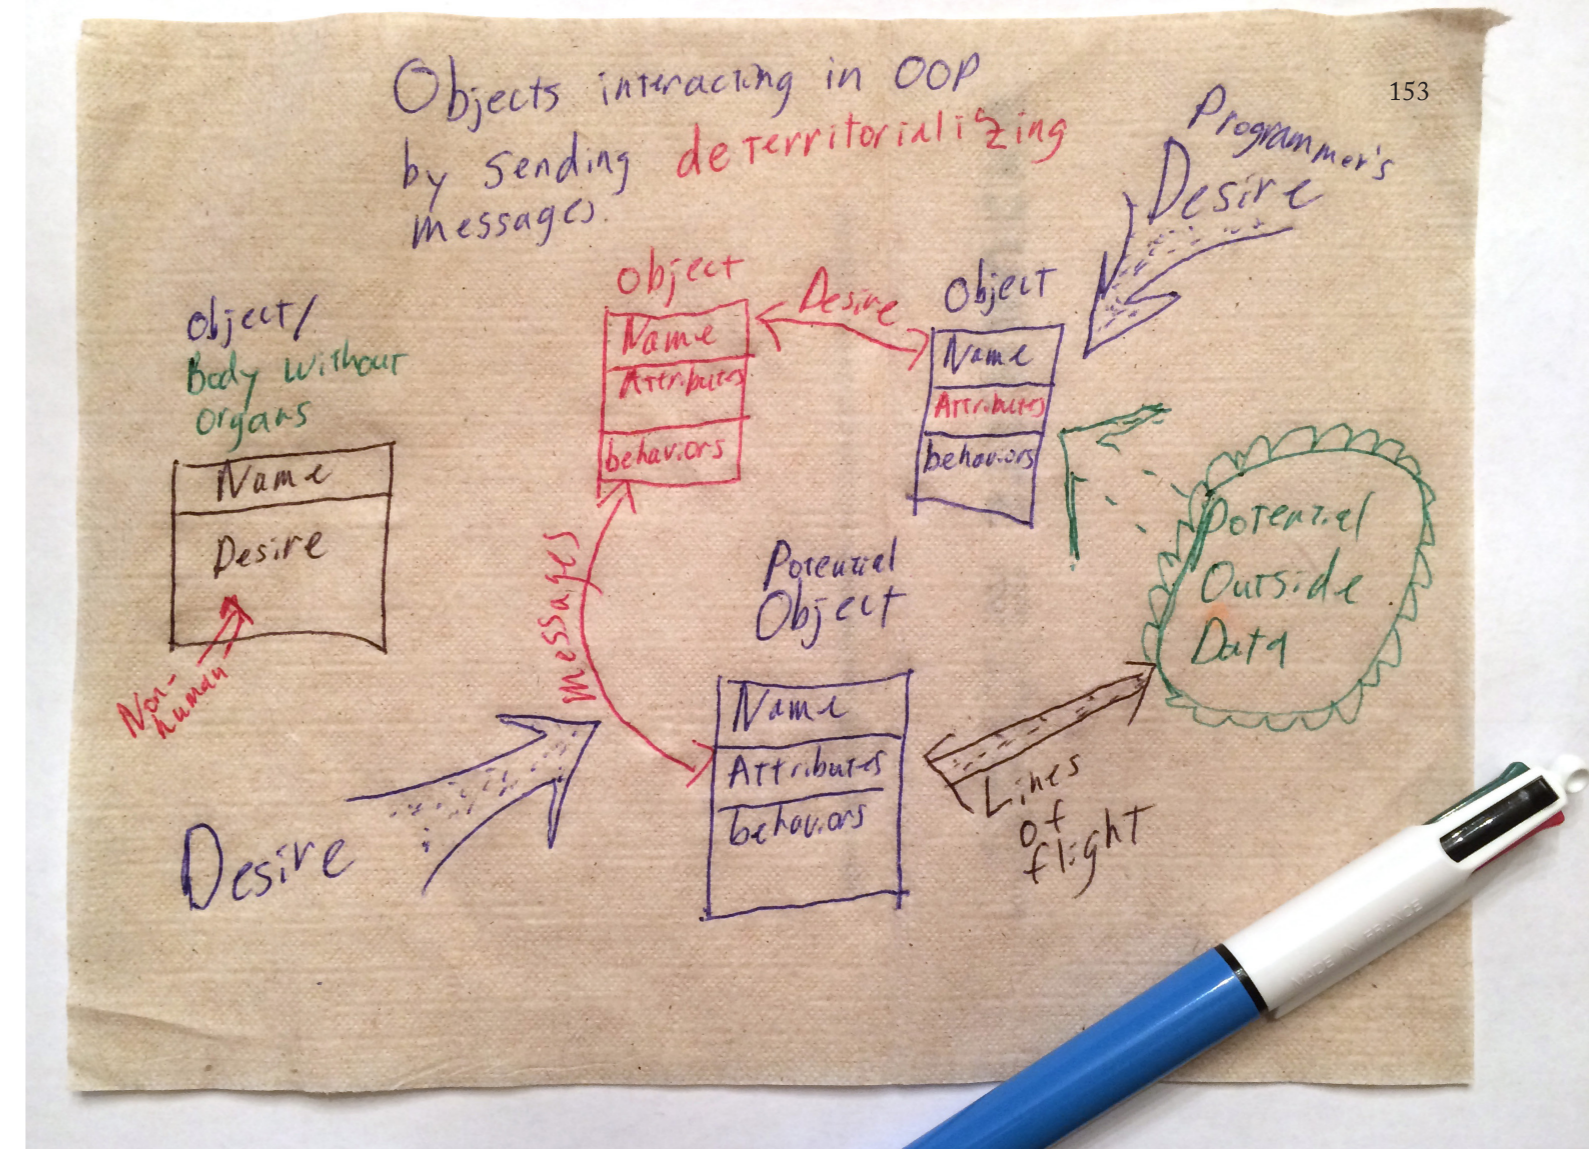 153
Objects interacting in OOP
by sending deterritorializing
messages.
Programmer's
Desire
Object/
Body without
Organs
Name
Desire
Non-
human
Object
Name
Attributes
behaviors
Desire
Object
Name
Attributes
behaviors
Potential
Outside
Data
messages
Potential
Object
Name
Attributes
behaviors
Desire
Lines
of
flight